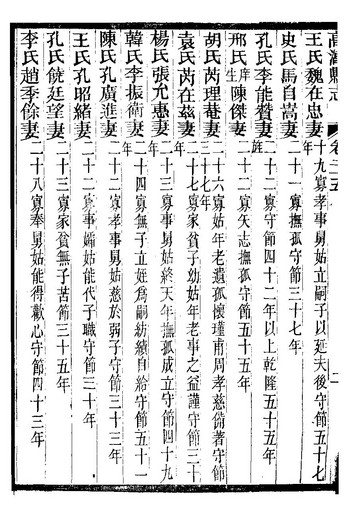 高淳縣志 卷二五 二
王氏魏在忠妻十九寡孝事舅姑立嗣子以延夫後守節五十七年
史氏馬自嵩妻二十一寡撫孤守節三十七年
孔氏李能贊妻二十二寡守節四十二年以上乾隆五十五年旌
邢氏庠生陳傑妻二十二寡矢志撫孤守節五十五年
胡氏芮理菴妻二十六寡姑年老遺孤懷瑾甫周孝慈備著守節三十七年
袁氏芮在茲妻二十七寡家貧子幼姑年老事之益謹守節三十年
楊氏張允惠妻二十三寡事舅姑終天年撫孤成立守節四十九年
韓氏李振衛妻二十四寡無子立姪爲嗣紡績自給守節五十一年
陳氏孔廣進妻二十一寡孝事舅姑慈於弱子守節三十三年
王氏孔昭緒妻二十二寡事孀姑能代子職守節三十年
孔氏饒廷望妻二十三寡家貧無子苦節三十五年
李氏趙季餘妻二十八寡奉舅姑能得歡心守節四十三年